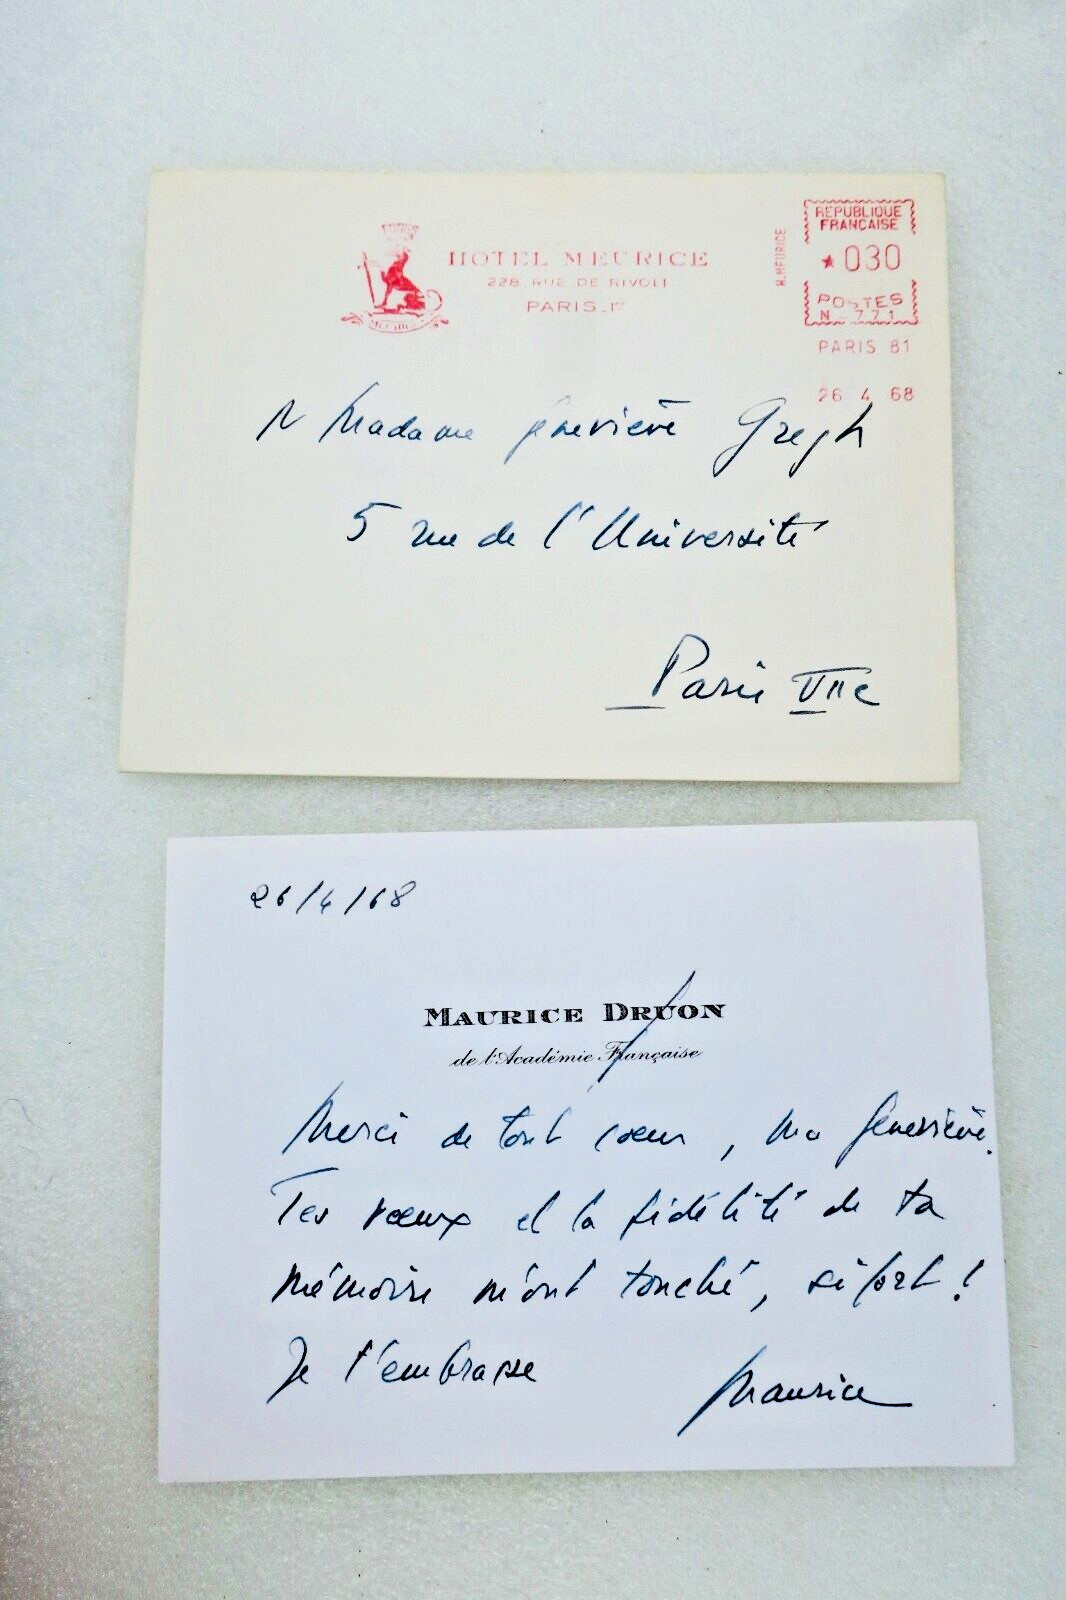 HOTEL MEURICE
228, RUE DE RIVOLI
PARIS_1er
MEURICE
H.MEURICE
REPUBLIQUE
FRANÇAISE
★ 030
POSTES
N_771
PARIS 81
26 4 68
Madame Geneviève Gregh
5 rue de l'Université
Paris VIIe
26/4/68
MAURICE DRUON
de l'Académie Française
Merci de tout coeur, ma Geneviève.
Tes voeux et la fidélité de ta
mémoire m'ont touché, si fort!
Je t'embrasse
Maurice